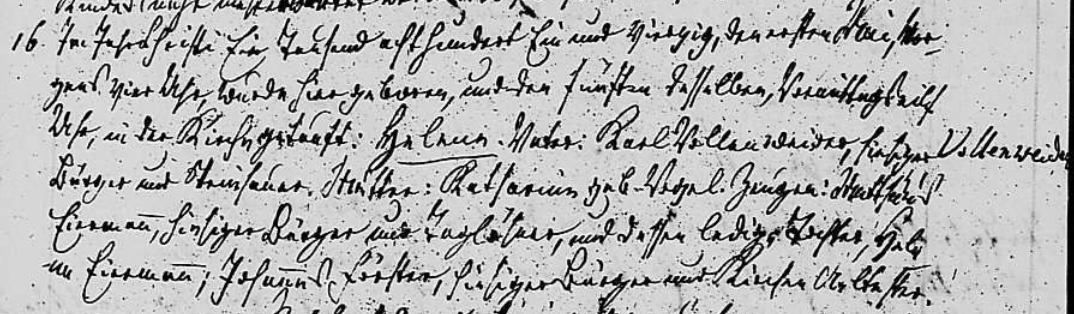 16. Im Jahr Christi Ein Tausend acht hundert Ein und Vierzig, den ersten Mai, Mor-
gens vier Uhr, wurde hier geboren, und den fünften desselben, Vormittags eilf
Uhr, in der Kirche getauft: Helena. Vater: Karl Vollenweider, hiesiger Vollenweider
Bürger und Steinhauer. Mutter: Katharina geb. Vogel. Zeugen: Matthäus
Eiermann, hiesiger Bürger und Taglöhner, und dessen ledige Tochter, Hele-
na Eiermann; Johannes Förster, hiesiger Bürger und Kirchen Aeltester.